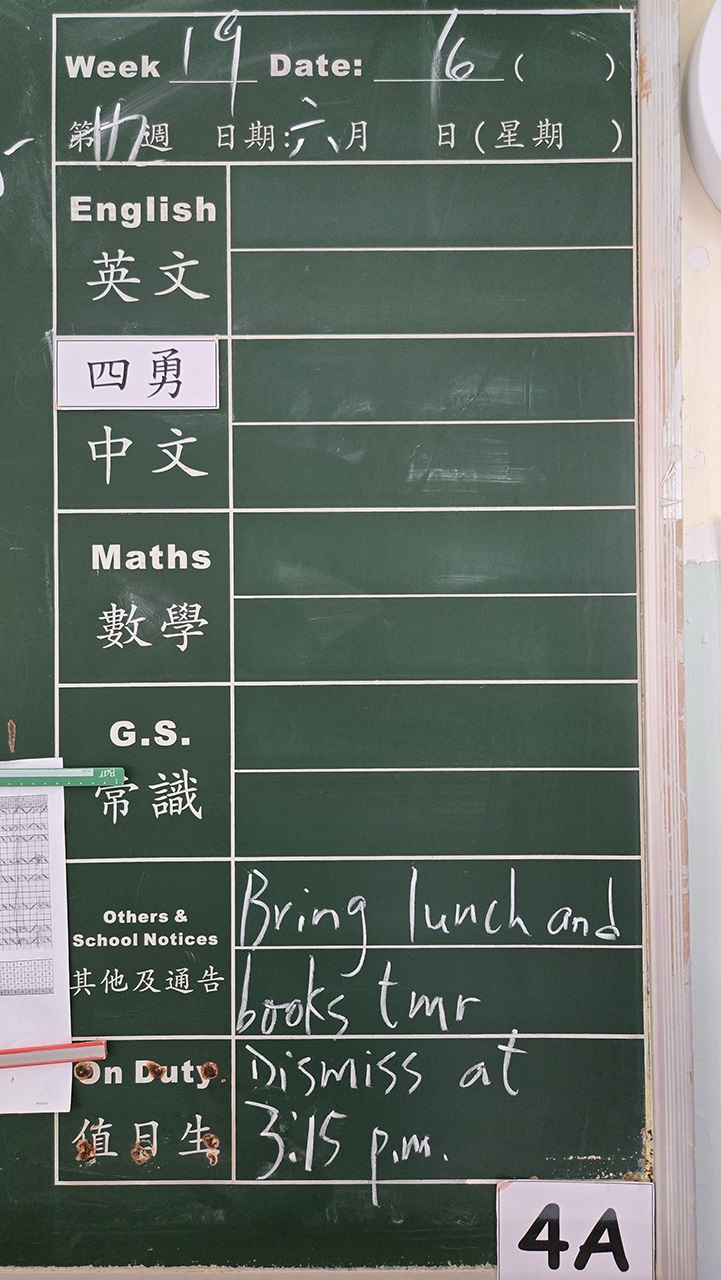 Week 19 Date: 6 ( )
第 週 日期:六月 日(星期 )
English
英文
四勇
中文
Maths
數學
G.S.
常識
Others &
School Notices
其他及通告
Bring lunch and
books tmr
On Duty
值日生
Dismiss at
3:15 p.m.
4A